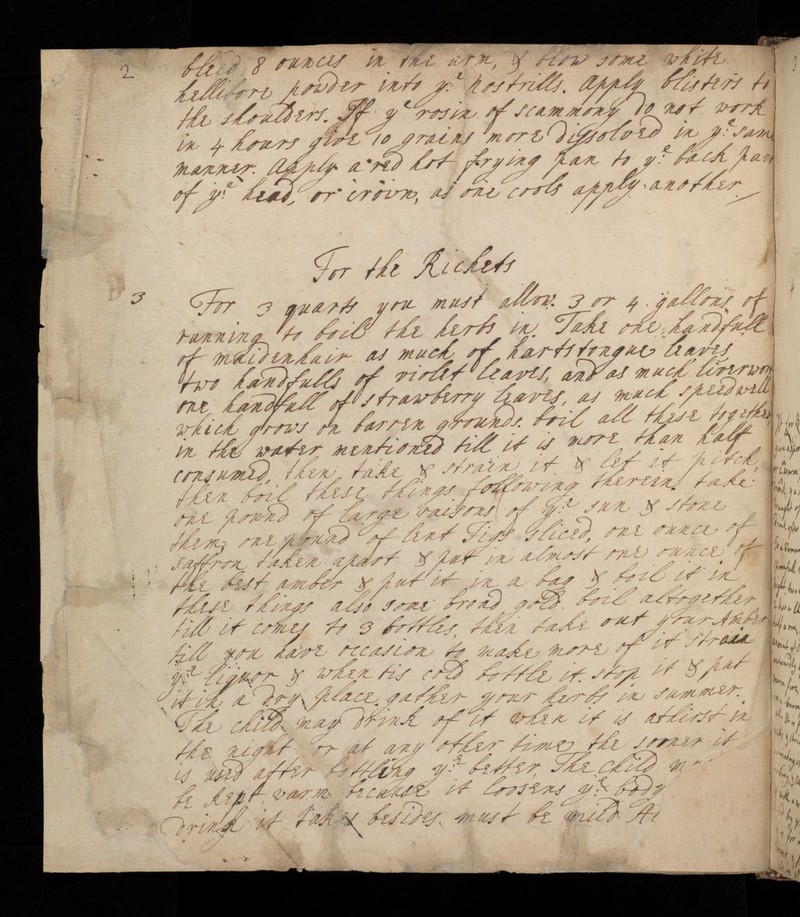 2
bleed 8 ounces in the arm, & blow some white
hellibore powder into yᵉ nostrills. apply blisters to
the shoulders. If yᵉ rosin of scammony do not work
in 4 hours give 10 grains more dissolved in yᵉ same
manner. apply a red hot frying pan to yᵉ back part
of yᵉ head, or crown, as one cools apply another
For the Rickets
3
For 3 quarts you must allow. 3 or 4. gallons of
running to boil the herbs in. Take one handfull
of maidenhair as much of hartstongue leaves
two handfulls of violet leaves, and as much liverwort
one handfull of strawberry leaves, as much speedwell
which grows on barren grounds. boil all these together
in the water mentioned till it is more than half
consumed, then take & strain it & let it pitch,
then boil these things following therein, take
one pound of large raisons of yᵉ sun & stone
them, one pound of lent figs sliced, one ounce of
saffron taken apart & put in almost one ounce of
the best amber & put it in a bag & boil it in
these things also some broad gold. boil altogether
till it comes to 3 bottles, then take out your Amber
till you have occasion to make more of it strain
yᵉ liquor & when tis cold bottle it. stop it & put
it in a dry place. gather your herbs in summer.
The child may drink of it when it is athirst in
the night or at any other time the sooner it
is used after bottling yᵉ better, The child
be kept warm because it loosens yᵉ body
drink it takes besides must be mild